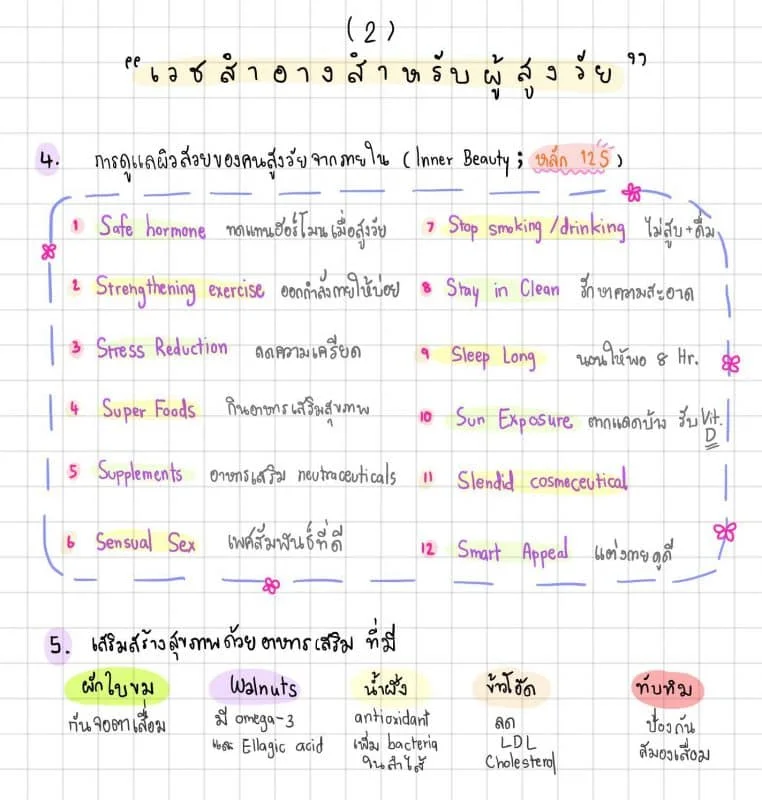 (2)
“เวชสำอางสำหรับผู้สูงวัย”
4. การดูแลผิวสวยของคนสูงวัยจากภายใน (Inner Beauty ; หลัก 12S)
1 Safe hormone ทดแทนฮอร์โมนเมื่อสูงวัย
2 Strengthening exercise ออกกำลังกายให้บ่อย
3 Stress Reduction ลดความเครียด
4 Super Foods กินอาหารเสริมสุขภาพ
5 Supplements อาหารเสริม neutraceuticals
6 Sensual Sex เพศสัมพันธ์ที่ดี
7 Stop smoking/drinking ไม่สูบ+ดื่ม
8 Stay in Clean รักษาความสะอาด
9 Sleep Long นอนให้พอ 8 Hr.
10 Sun Exposure ตากแดดบ้าง รับ Vit.
D
11 Slendid cosmeceutical
12 Smart Appeal แต่งกายดูดี
5. เสริมสร้างสุขภาพด้วยอาหารเสริม ที่มี
ผักใบขม
กันจอตาเสื่อม
Walnuts
มี omega-3
และ Ellagic acid
น้ำผึ้ง
antioxidant
เพิ่ม bacteria
ในลำไส้
ข้าวโอ๊ต
ลด
LDL
Cholesterol
ทับทิม
ป้องกัน
สมองเสื่อม